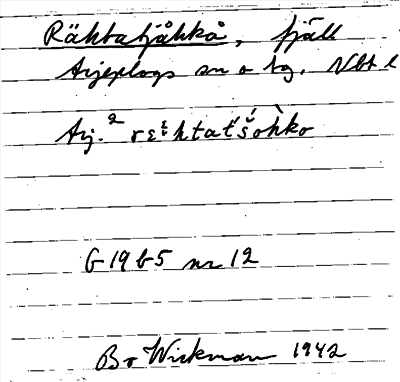 Räktatjåkkå, fjäll
Arjeplogs sn o tg. Nbt l
Arj.² rɛ̄ᵋktat́t́š́ohko
G 19 b5 nr 12
Bo Wickman 1942